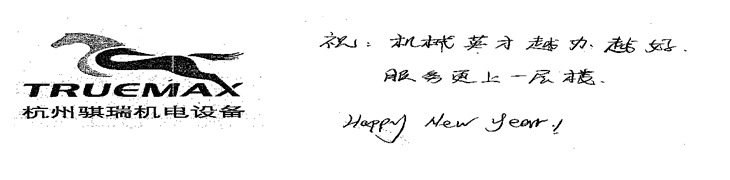 TRUEMAX
杭州骐瑞机电设备
祝：机械英才越办越好.
服务更上一层楼.
Happy New Year!